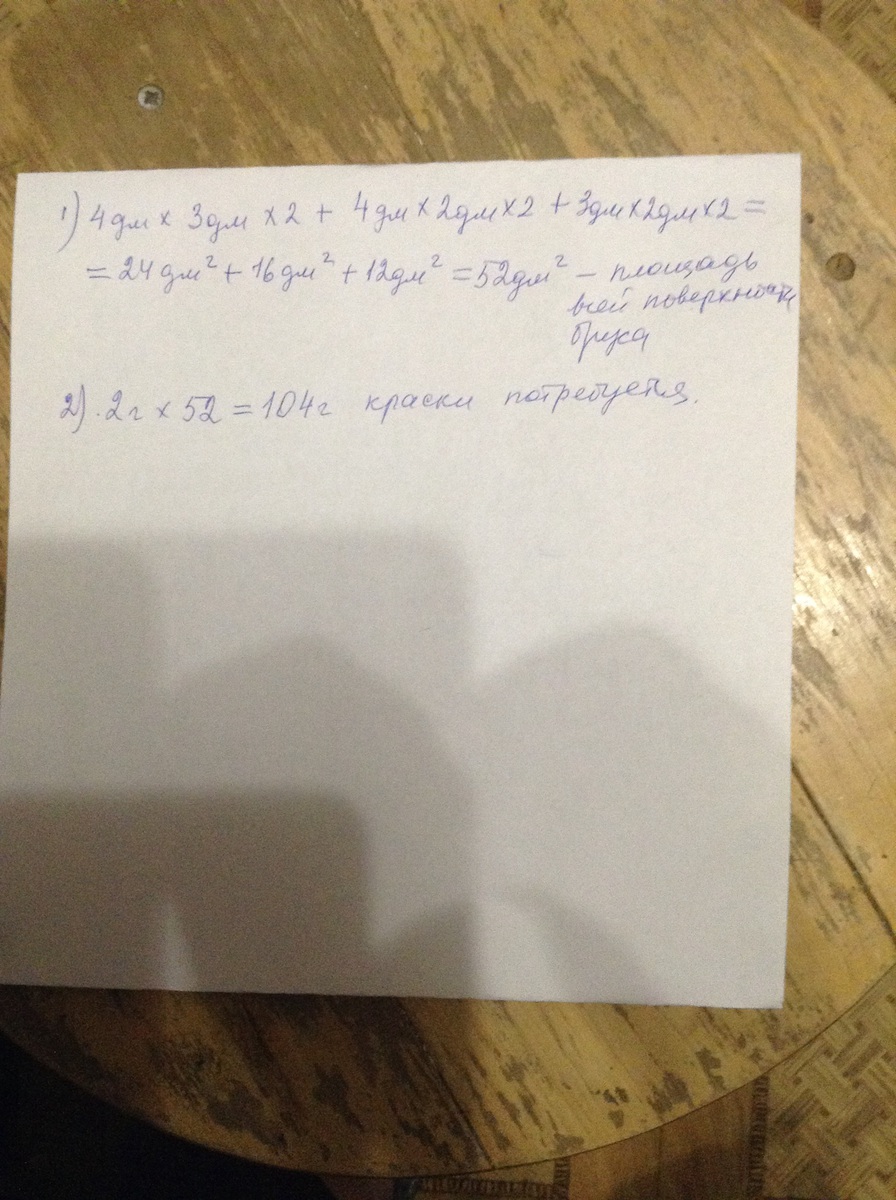 1) 4дм × 3дм × 2 + 4дм × 2дм × 2 + 3дм × 2дм × 2 =
= 24дм² + 16дм² + 12дм² = 52дм² – площадь
всей поверхности
бруса
2) 2г × 52 = 104г краски потребуется.